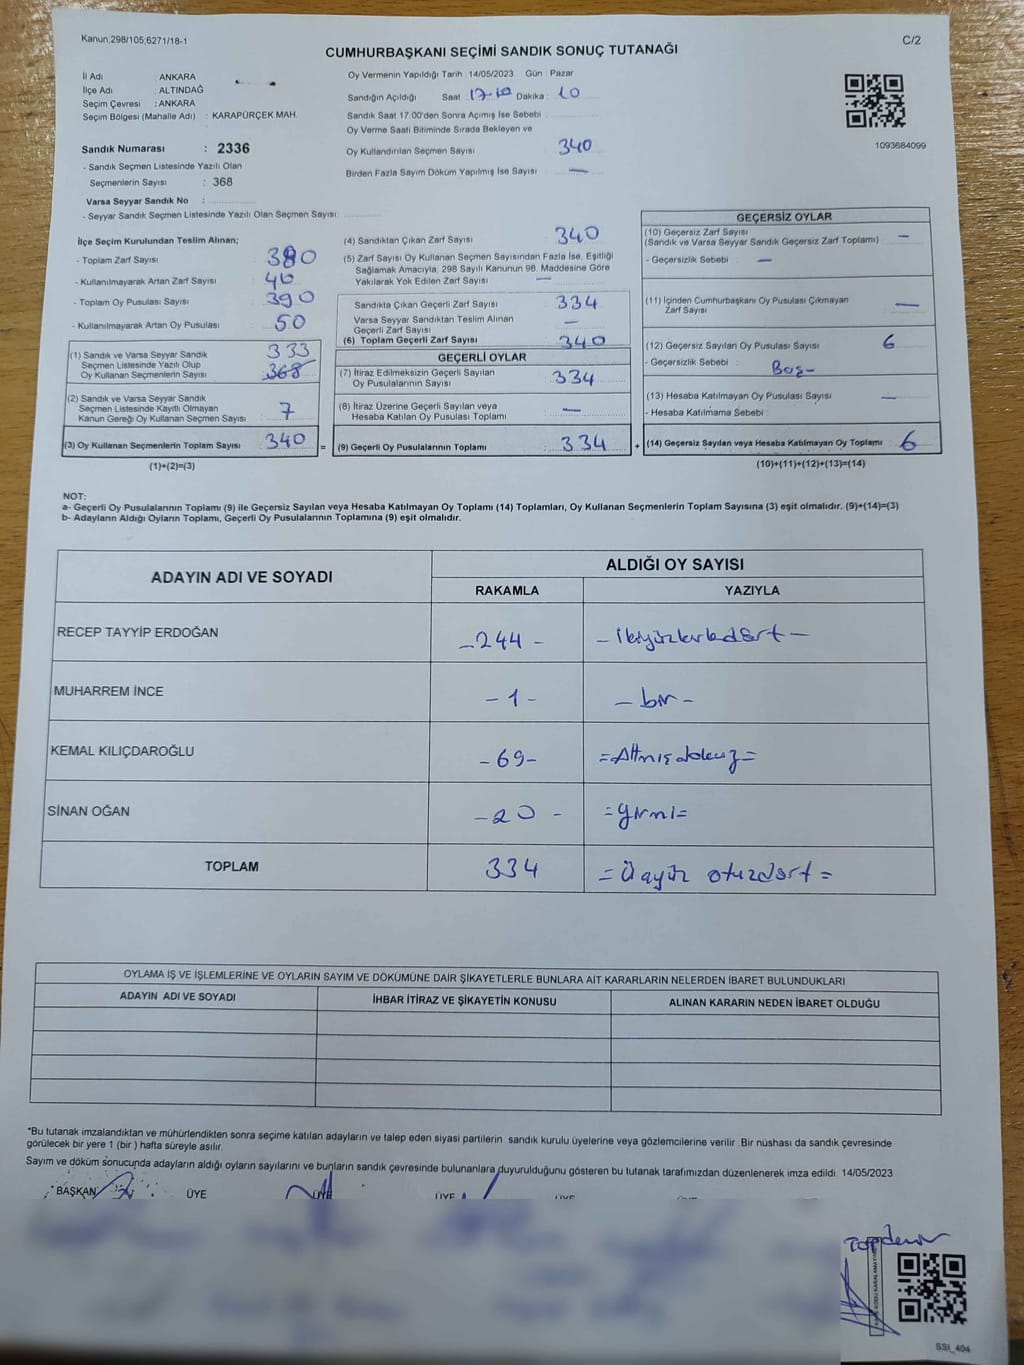 Kanun;298/105;6271/18-1
C/2
CUMHURBAŞKANI SEÇİMİ SANDIK SONUÇ TUTANAĞI
İl Adı : ANKARA
İlçe Adı : ALTINDAĞ
Seçim Çevresi : ANKARA
Seçim Bölgesi (Mahalle Adı) : KARAPÜRÇEK MAH.
Sandık Numarası : 2336
- Sandık Seçmen Listesinde Yazılı Olan
Seçmenlerin Sayısı : 368
Varsa Seyyar Sandık No :
- Seyyar Sandık Seçmen Listesinde Yazılı Olan Seçmen Sayısı:
Oy Vermenin Yapıldığı Tarih :14/05/2023 Gün : Pazar
Sandığın Açıldığı Saat : 17-10 Dakika : 10
Sandık Saat 17:00'den Sonra Açımış İse Sebebi :
Oy Verme Saati Bitiminde Sırada Bekleyen ve
Oy Kullandırılan Seçmen Sayısı 340
Birden Fazla Sayım Döküm Yapılmış İse Sayısı : —
1093684099
İlçe Seçim Kurulundan Teslim Alınan;
- Toplam Zarf Sayısı : 380
- Kullanılmayarak Artan Zarf Sayısı : 40
- Toplam Oy Pusulası Sayısı : 390
- Kullanılmayarak Artan Oy Pusulası : 50
(1) Sandık ve Varsa Seyyar Sandık 333
Seçmen Listesinde Yazılı Olup
Oy Kullanan Seçmenlerin Sayısı 368
(2) Sandık ve Varsa Seyyar Sandık
Seçmen Listesinde Kayıtlı Olmayan
Kanun Gereği Oy Kullanan Seçmen Sayısı : 7
(3) Oy Kullanan Seçmenlerin Toplam Sayısı : 340 =
(1)+(2)=(3)
(4) Sandıktan Çıkan Zarf Sayısı : 340
(5) Zarf Sayısı Oy Kullanan Seçmen Sayısından Fazla İse, Eşitliği
Sağlamak Amacıyla, 298 Sayılı Kanunun 98. Maddesine Göre
Yakılarak Yok Edilen Zarf Sayısı : —
Sandıkta Çıkan Geçerli Zarf Sayısı : 334
Varsa Seyyar Sandıktan Teslim Alınan
Geçerli Zarf Sayısı : —
(6) Toplam Geçerli Zarf Sayısı : 340
GEÇERLİ OYLAR
(7) İtiraz Edilmeksizin Geçerli Sayılan
Oy Pusulalarının Sayısı : 334
(8) İtiraz Üzerine Geçerli Sayılan veya
Hesaba Katılan Oy Pusulası Toplamı : —
(9) Geçerli Oy Pusulalarının Toplamı : 334 +
GEÇERSİZ OYLAR
(10) Geçersiz Zarf Sayısı
(Sandık ve Varsa Seyyar Sandık Geçersiz Zarf Toplamı) : —
- Geçersizlik Sebebi : —
(11) İçinden Cumhurbaşkanı Oy Pusulası Çıkmayan
Zarf Sayısı : —
(12) Geçersiz Sayılan Oy Pusulası Sayısı : 6
- Geçersizlik Sebebi : Boş-
(13) Hesaba Katılmayan Oy Pusulası Sayısı : —
- Hesaba Katılmama Sebebi :
(14) Geçersiz Sayılan veya Hesaba Katılmayan Oy Toplamı : 6
(10)+(11)+(12)+(13)=(14)
NOT:
a- Geçerli Oy Pusulalarının Toplamı (9) ile Geçersiz Sayılan veya Hesaba Katılmayan Oy Toplamı (14) Toplamları, Oy Kullanan Seçmenlerin Toplam Sayısına (3) eşit olmalıdır. (9)+(14)=(3)
b- Adayların Aldığı Oyların Toplamı, Geçerli Oy Pusulalarının Toplamına (9) eşit olmalıdır.
ADAYIN ADI VE SOYADI
ALDIĞI OY SAYISI
RAKAMLA YAZIYLA
RECEP TAYYİP ERDOĞAN -244- -ikiyüzkırkdört-
MUHARREM İNCE -1- -bir-
KEMAL KILIÇDAROĞLU -69- =Altmışdokuz=
SİNAN OĞAN -20- =yirmi=
TOPLAM 334 =Üçyüz otuzdört=
OYLAMA İŞ VE İŞLEMLERİNE VE OYLARIN SAYIM VE DÖKÜMÜNE DAİR ŞİKAYETLERLE BUNLARA AİT KARARLARIN NELERDEN İBARET BULUNDUKLARI
ADAYIN ADI VE SOYADI İHBAR İTİRAZ VE ŞİKAYETİN KONUSU ALINAN KARARIN NEDEN İBARET OLDUĞU
*Bu tutanak imzalandıktan ve mühürlendikten sonra seçime katılan adayların ve talep eden siyasi partilerin sandık kurulu üyelerine veya gözlemcilerine verilir .Bir nüshası da sandık çevresinde
görülecek bir yere 1 (bir ) hafta süreyle asılır.
Sayım ve döküm sonucunda adayların aldığı oyların sayılarını ve bunların sandık çevresinde bulunanlara duyurulduğunu gösteren bu tutanak tarafımızdan düzenlenerek imza edildi. 14/05/2023
BAŞKAN ÜYE ÜYE ÜYE
SSI_404